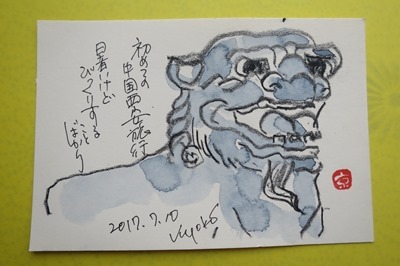 初めての
中国西安旅行
暑いけど
びっくりする
ことばかり
2017.7.10
Kyoko
京